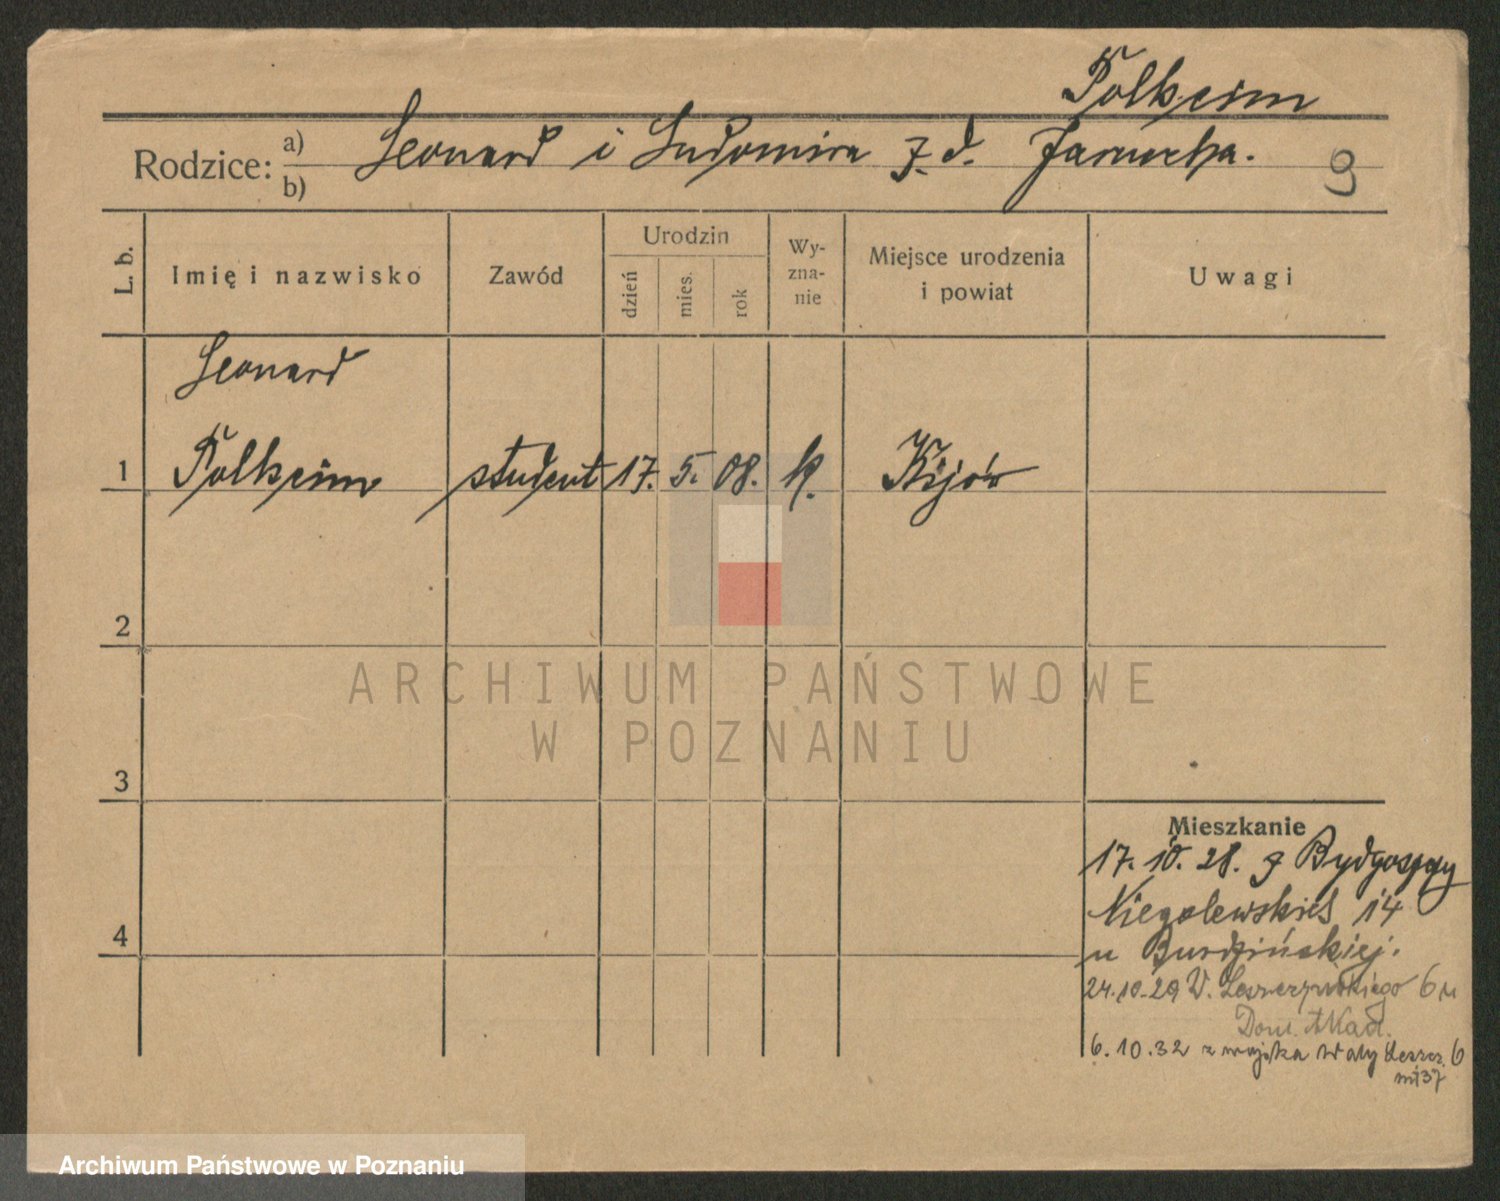 Tolkeim
Rodzice: a) Leonard i Ludomira z. d. Jarnocka.
b)
9
L. b. Imię i nazwisko Zawód Urodzin dzień mies. rok Wyznanie Miejsce urodzenia i powiat Uwagi
Leonard
1 Tolkeim student 17. 5. 08. k. Kijów
2
ARCHIWUM PAŃSTWOWE
W POZNANIU
3
Mieszkanie
17. 10. 28. z Bydgoszczy
Niegolewskich 14
4
u Burdzińskiej.
24.10.29 W. Leszczyńskiego 6 u
Dom. Akad.
6.10.32 z wojska Wały Leszcz. 6
m 37
Archiwum Państwowe w Poznaniu